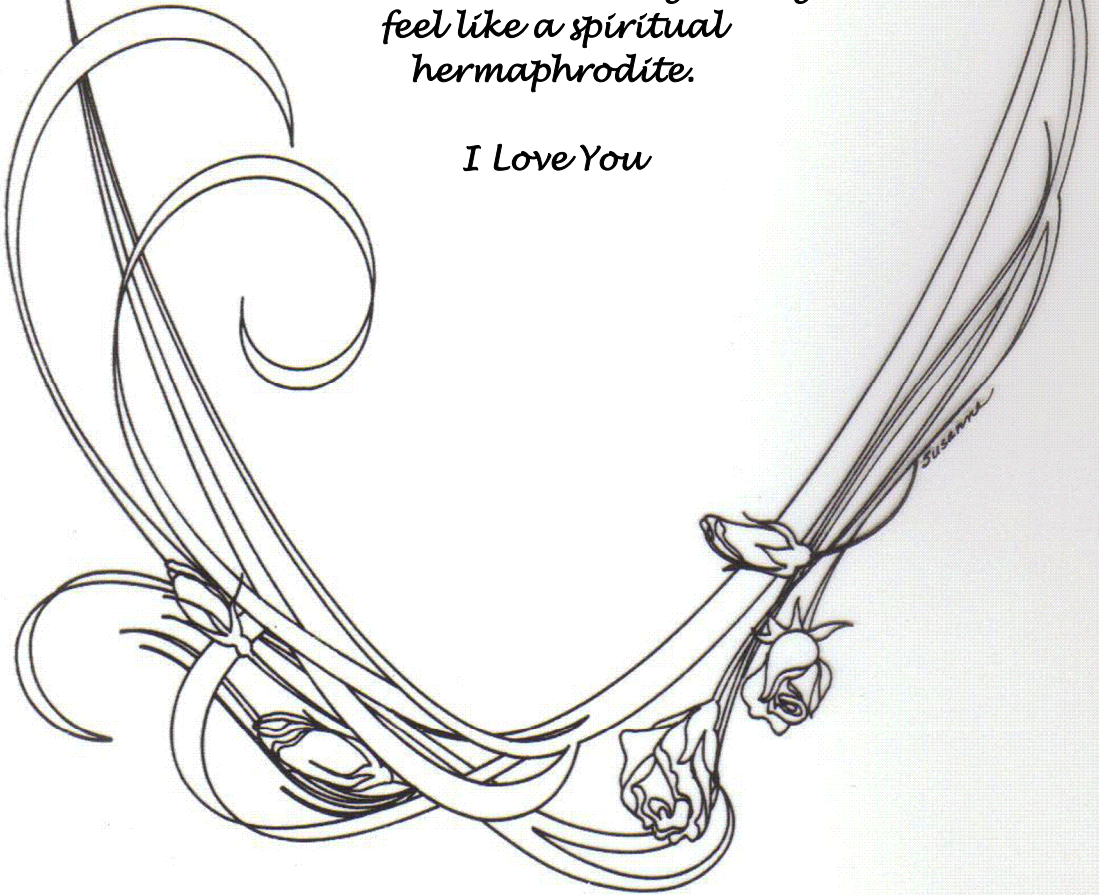 feel like a spiritual
hermaphrodite.
I Love You
Susanne